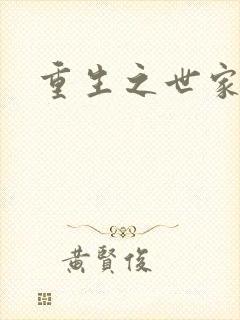 重生之世家
黄賢俊